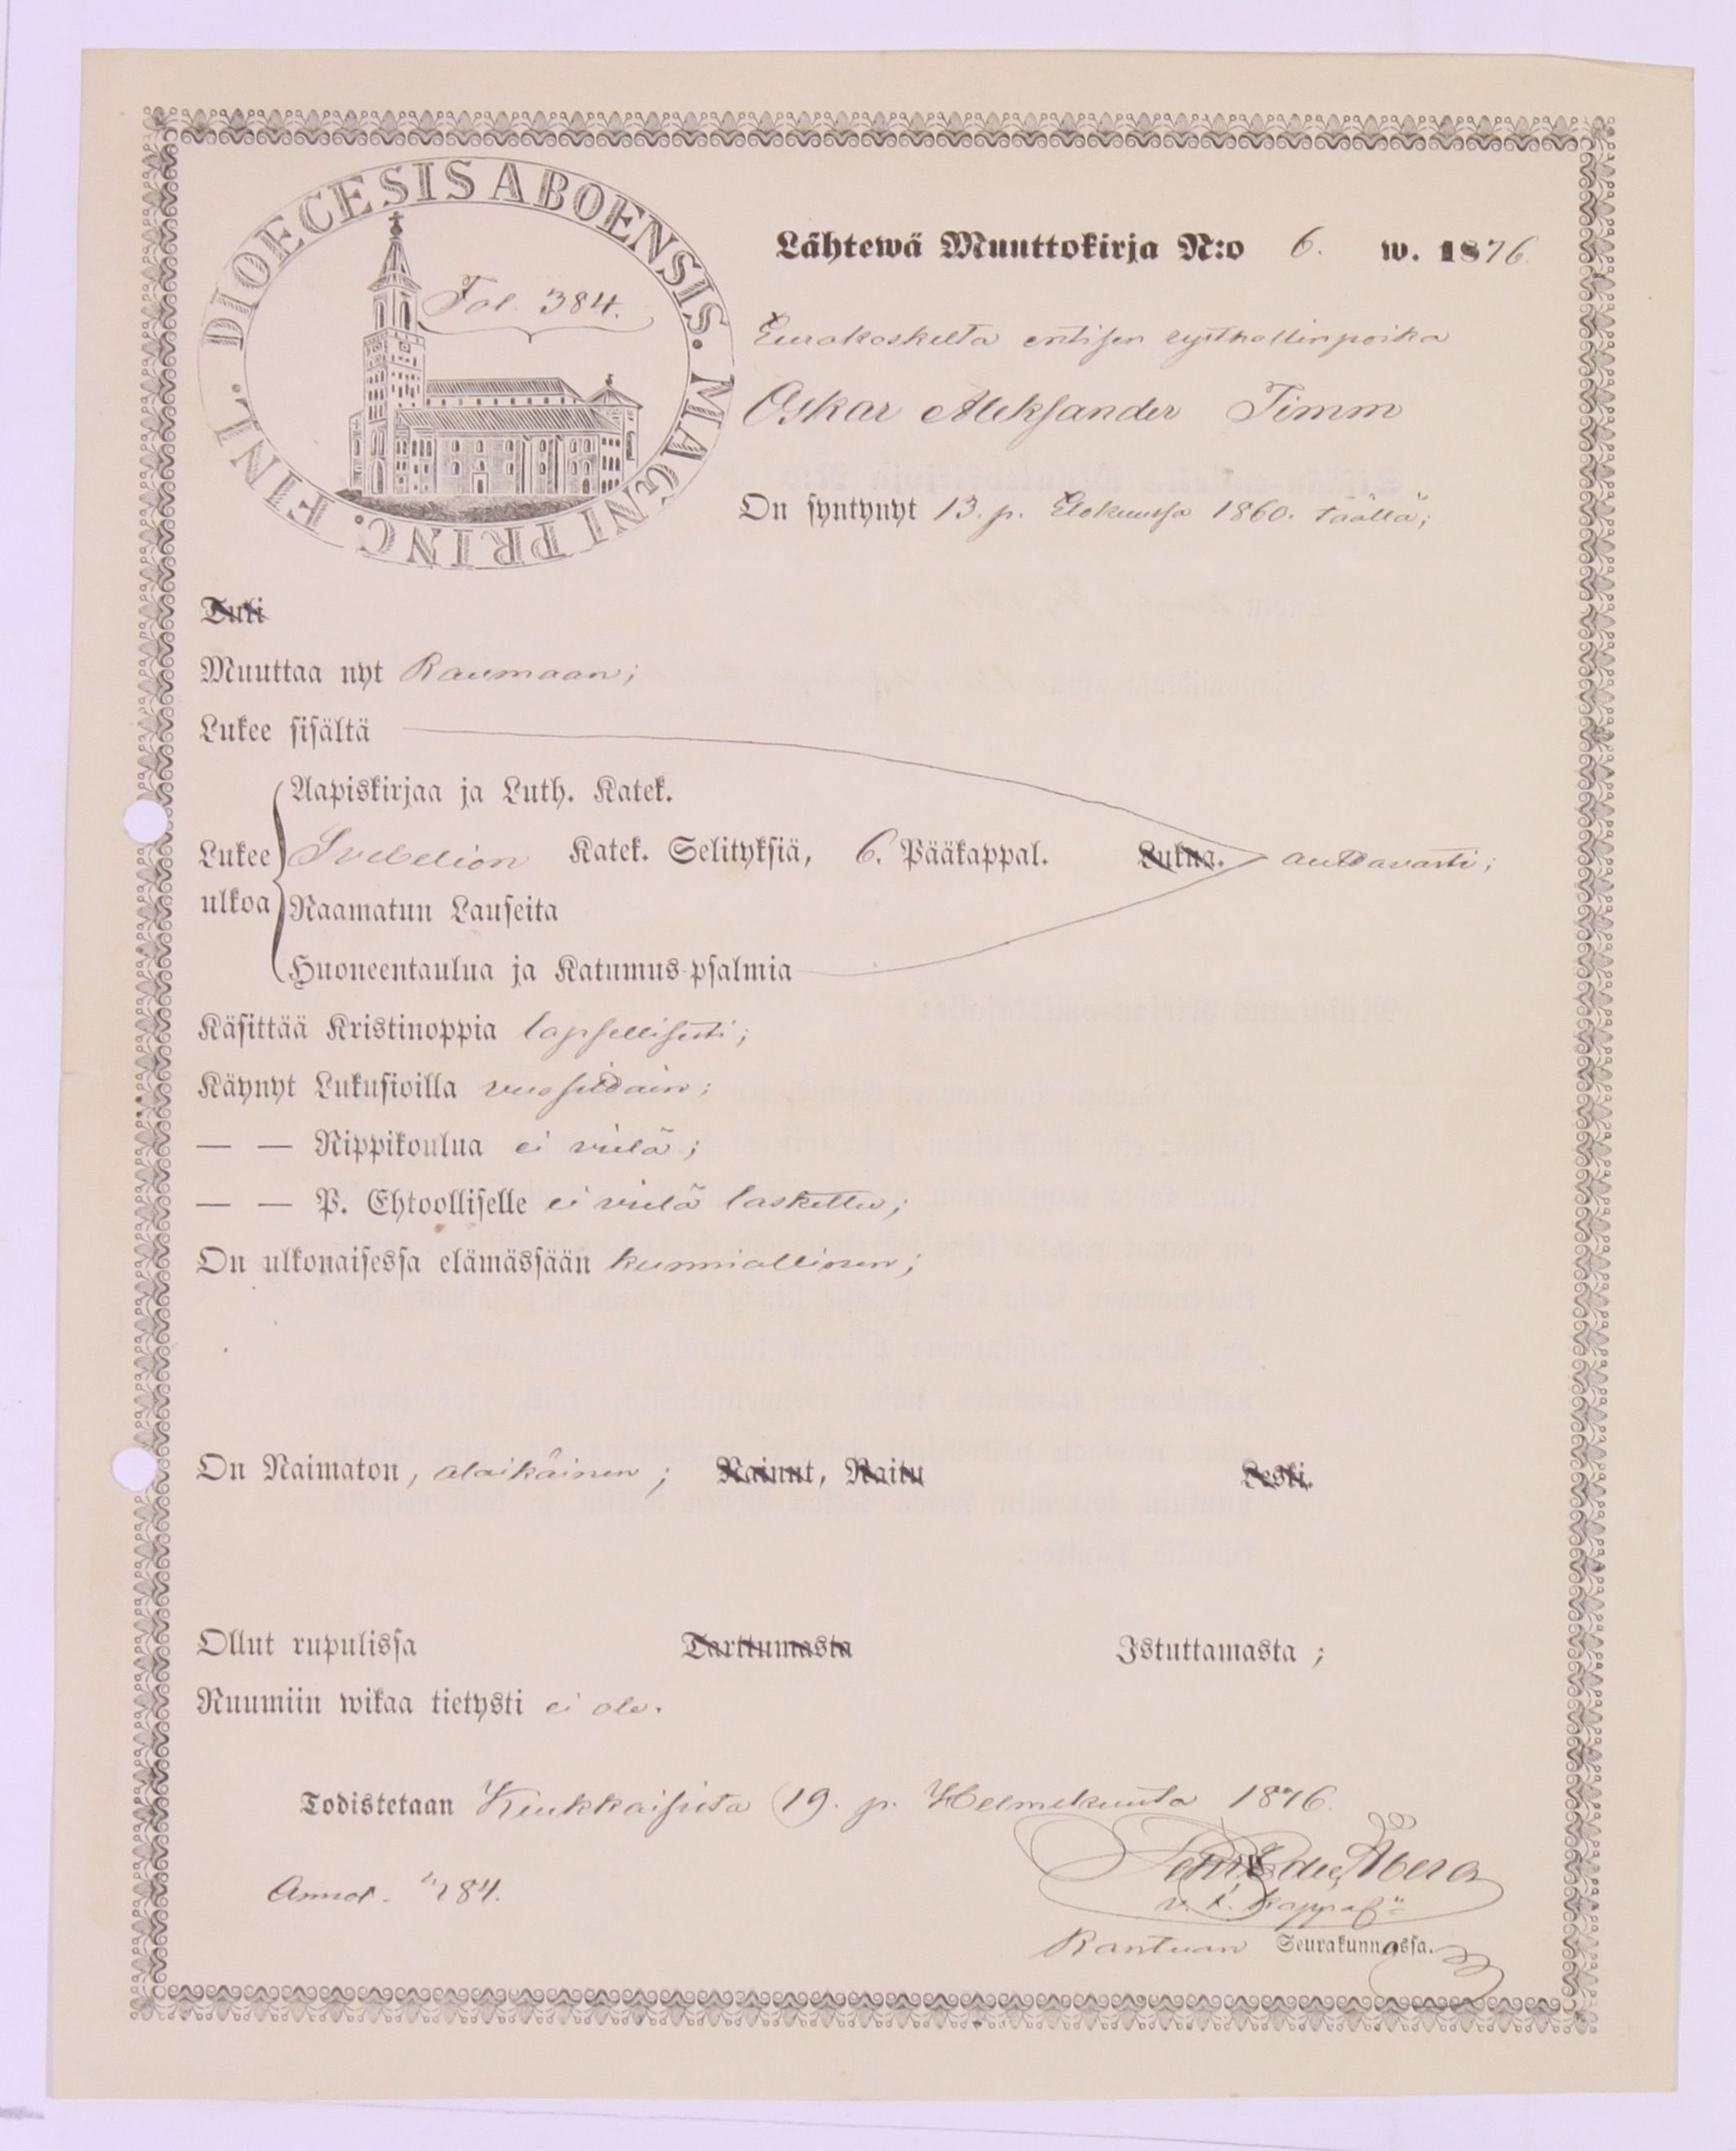 DIOECESIS ABOENSIS. MAGNI PRINC. FINL.
Fol. 384.
Lähtewä Muuttokirja N:o 6. w. 1876.
Eurakoskelta entisen rysthollinpoika
Oskar Aleksander Timm
On syntynyt 13. p. Elokuussa 1860. täällä;
Tuli
Muuttaa nyt Raumaan;
Lukee sisältä
Aapiskirjaa ja Luth. Katek.
Lukee ulkoa Svebelion Katek. Selityksiä, 6. Pääkappal. Lukua. auttavasti;
Raamatun Lauseita
Huoneentaulua ja Katumus-psalmia
Käsittää Kristinoppia lapsellisesti;
Käynyt Lukusioilla vuosittain;
— — Rippikoulua ei vielä;
— — P. Ehtoolliselle ei vielä laskettu;
On ulkonaisessa elämässään kunniallinen;
On Naimaton, alaikäinen; Nainut, Naitu Leski.
Ollut rupulissa Tarttumasta Istuttamasta;
Ruumiin wikaa tietysti ei ole.
Todistetaan Kiukkaisista 19. p. Helmikuuta 1876.
Åberg
v. t. kappal:
Annot. 184.
Seurakunnassa.